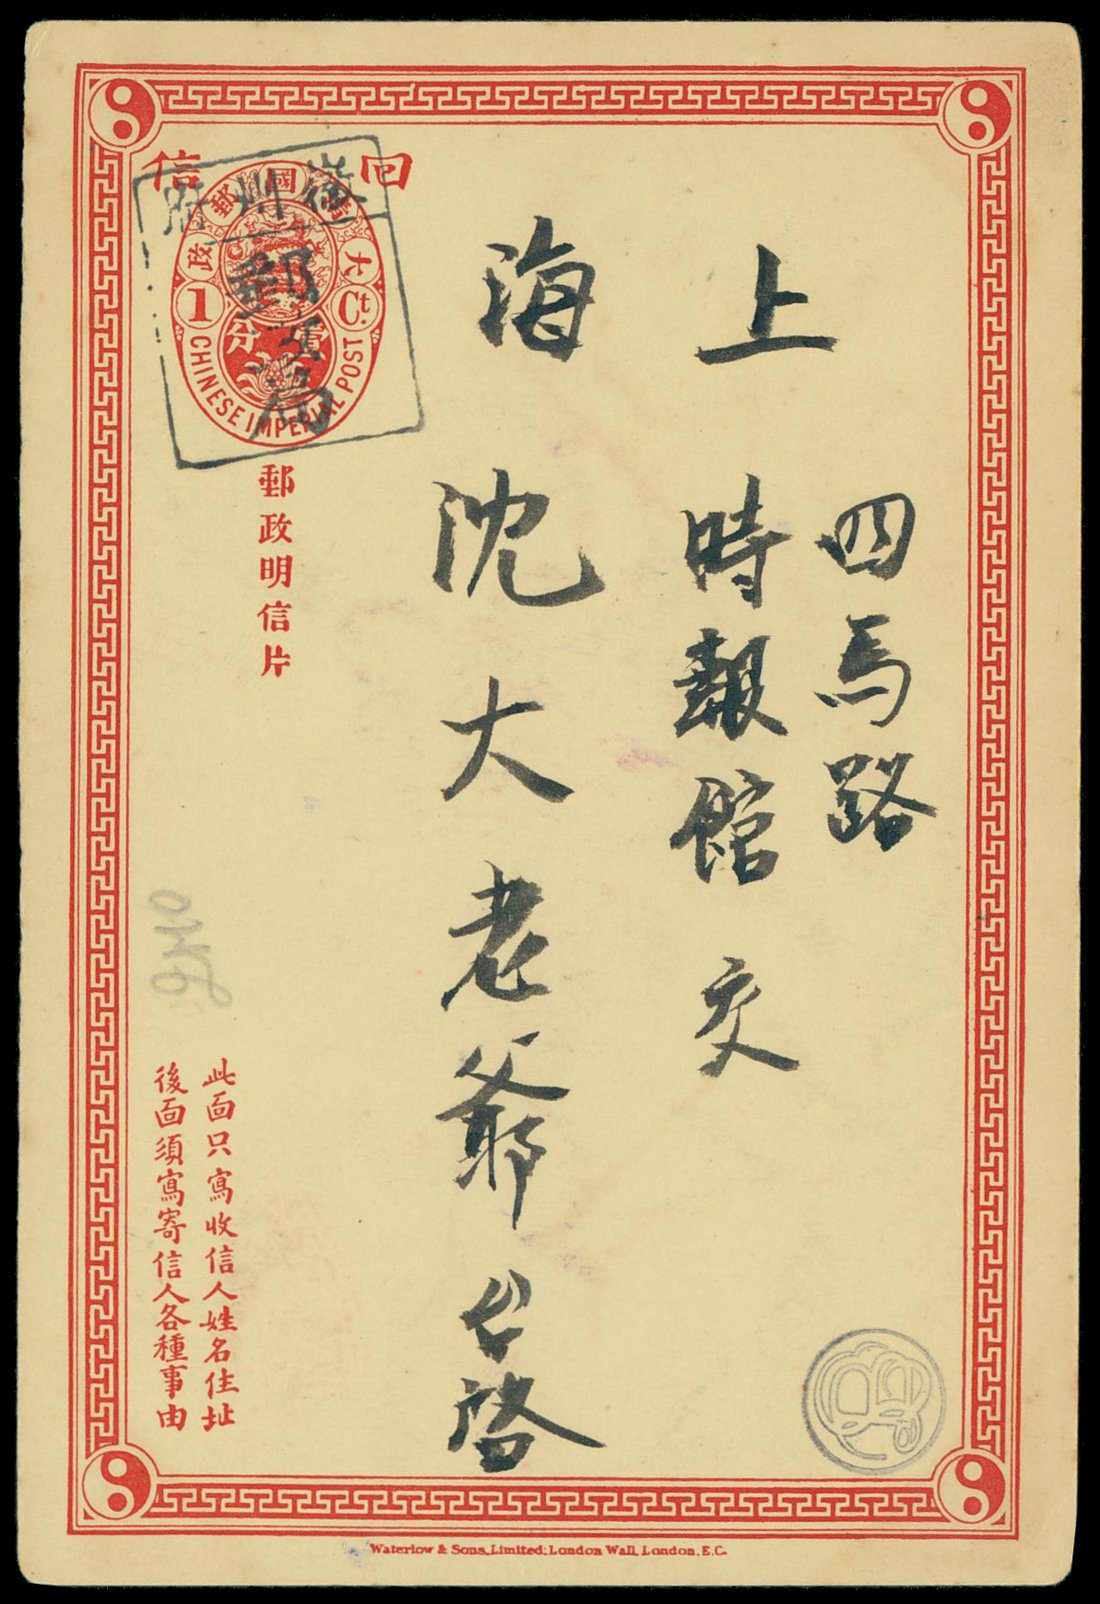 四馬路
上時報館交
海沈大老爺台啓
回信
徽州府
郵政局
大清國郵政
1 Ct.
壹分
CHINESE IMPERIAL POST
郵政明信片
此面只寫收信人姓名住址
後面須寫寄信人各種事由
Waterlow & Sons, Limited, London Wall, London, E.C.